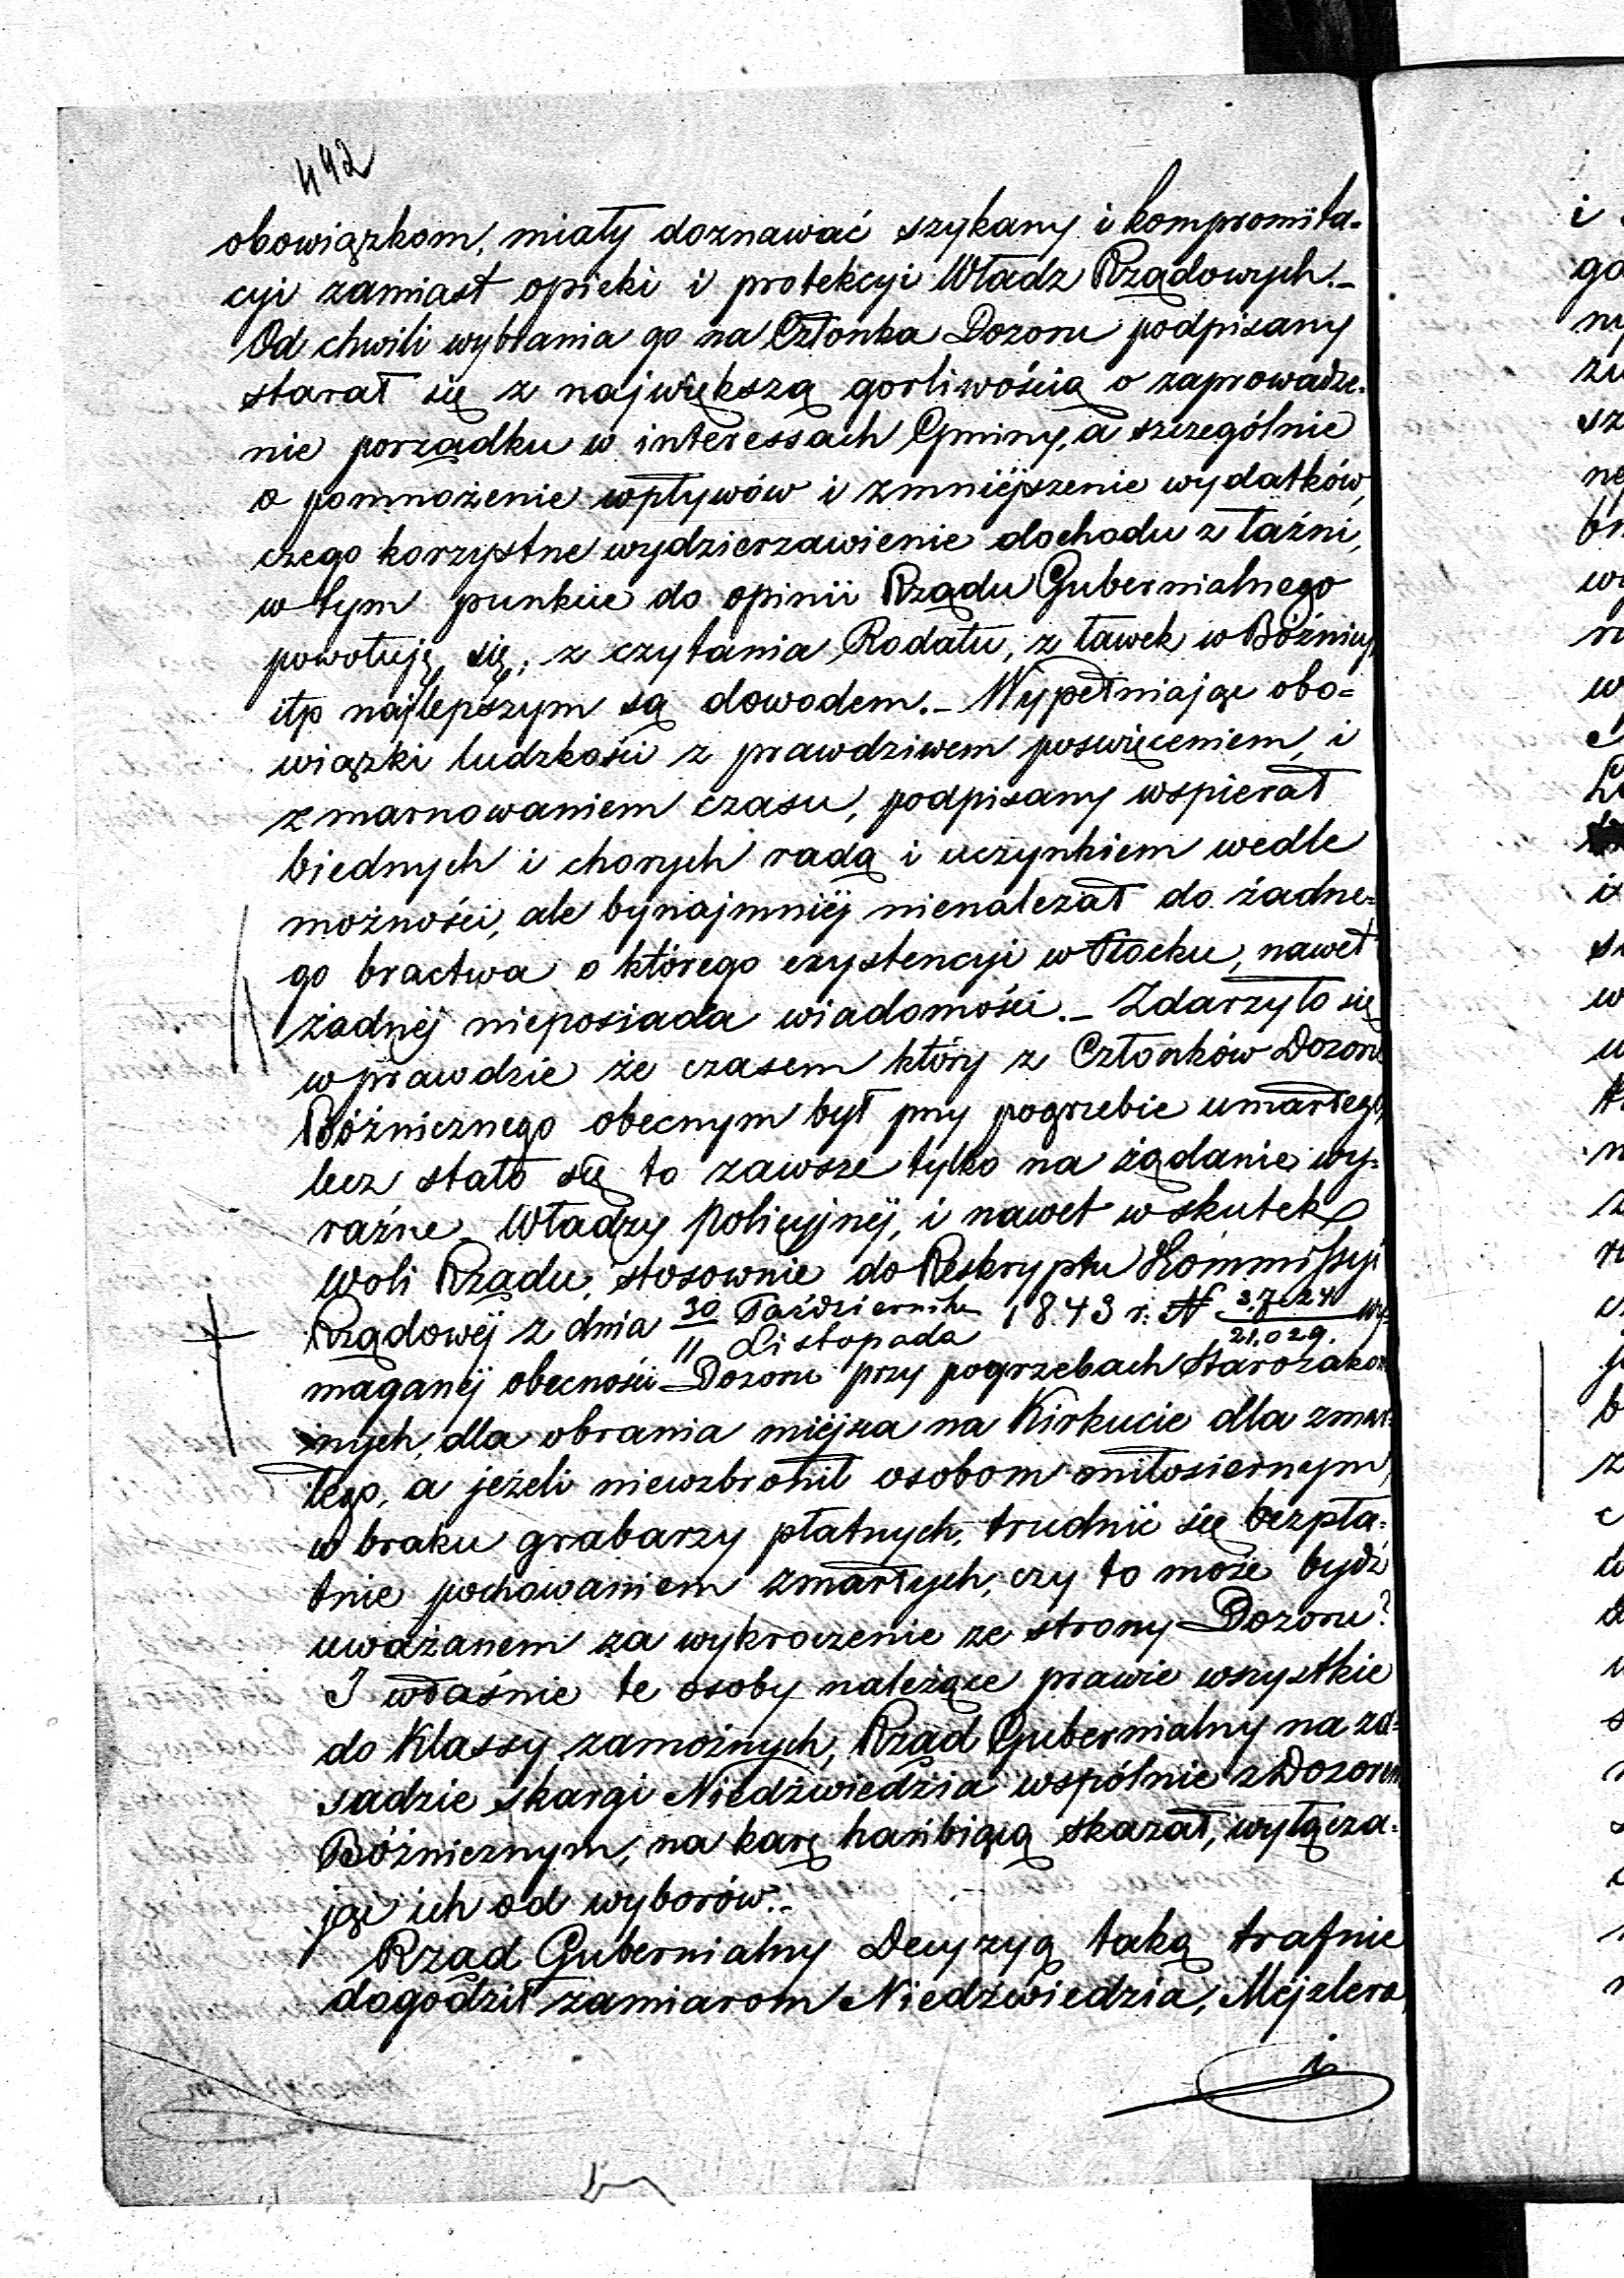 442
obowiązkom, miały doznawać szykany i kompromita-
cyi zamiast opieki i protekcyi Władz Rządowych.-
Od chwili wybrania go na Członka Dozoru podpisany
starał się z największą gorliwością o zaprowadze-
nie porządku w interessach Gminy, a szczególnie
o pomnożenie wpływów i zmniéjszenie wydatków,
czego korzystne wydzierzawienie dochodu z łaźni,
w tym punkcie do opinii Rządu Gubernialnego
powołuję się; z czytania Rodału, z ławek w Bóżnicy,
itp najlepszym są dowodem.- Wypełniając obo=
wiązki ludzkości z prawdziwem poswięceniem, i
zmarnowaniem czasu, podpisany wspierał
biednych i chorych radą i uczynkiem wedle
możności, ale bynajmniéj nienalezał do żadne-
go bractwa o którego exystencyi w Płocku, nawet
żadnéj nieposiada wiadomości.- Zdarzyło się
wprawdzie że czasem który z Członków Dozoru
Bóżnicznego obecnym był przy pogrzebie umarłego,
lecz stało się to zawsze tylko na żądanie wy-
raźne Władzy Policyjnéj, i nawet w skutek
woli Rządu, stosownie do Reskryptu Kommissyi
Rządowéj z dnia 30/11 Października/Listopada 1843 r: N 3,724/21.029. wy-
maganéj obecności Dozoru przy pogrzebach Starozakon
nych, dla obrania miéjsca na Kirkucie dla zmar-
łego, a jeżeli niewzbronił osobom miłosiernym,
w braku grabarzy płatnych, trudnić się bezpła-
tnie pochowaniem zmarłych, czy to może bydź
uważanem za wykroczenie ze strony Dozoru?
I właśnie te osoby należące prawie wszystkie
do Klassy zamożnych, Rząd Gubernialny na za-
sadzie skargi Niedźwiedzia wspólnie z Dozorem
Bóżnicznym, na karę hańbiącą skazał, wyłącza-
jąc ich od wyborów.-
Rząd Gubernialny Decyzyą taką trafnie
dogodził zamiarom Niedźwiedzia, Mejzlera
i